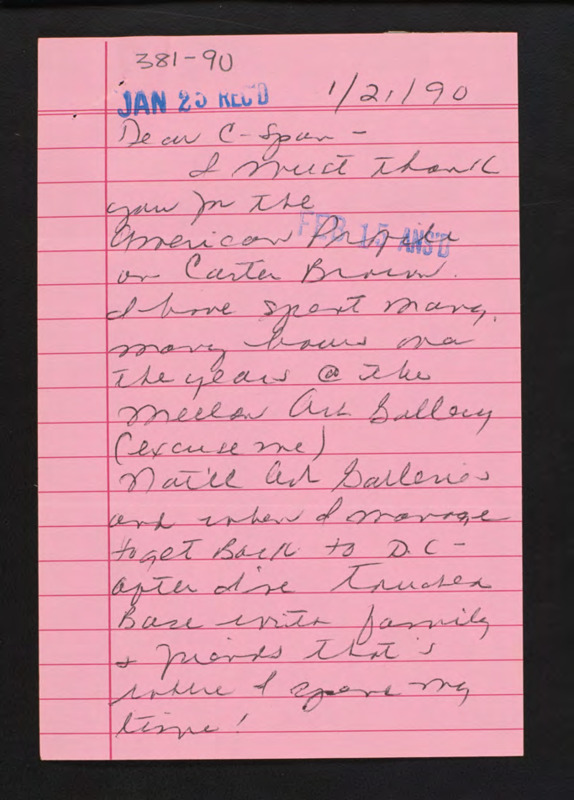 381-90
JAN 25 REC'D 1/21/90
Dear C-Span -
I must thank
you for the
American Profile
FEB 15 ANS'D
on Carter Brown.
I have spent many,
many hours over
the years @ the
Mellon Art Gallery
(excuse me)
Nat'll Art Galleries
and when I manage
to get Back to D.C-
after I've touched
Base with family
& friends that's
where I spend my
time!